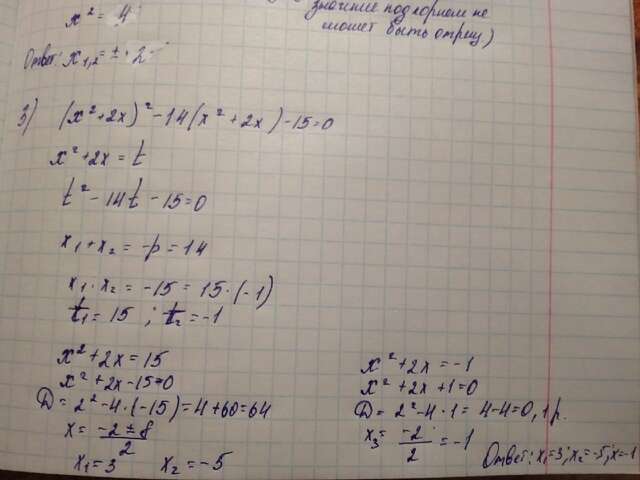 x² = 4
значение под корнем не
может быть отриц)
Ответ: x₁,₂ = ± 2
3) (x²+2x)² - 14(x²+2x) - 15=0
x²+2x = t
t² - 14t - 15=0
x₁+x₂ = -p = 14
x₁·x₂ = -15 = 15·(-1)
t₁ = 15 ; t₂ = -1
x²+2x = 15
x²+2x-15=0
D = 2²-4·(-15)=4+60=64
x = (-2±8)/2
x₁=3 x₂ = -5
x²+2x = -1
x²+2x+1=0
D = 2²-4·1 = 4-4=0, 1 р.
x₃ = -2/2 = -1
Ответ: x₁=3; x₂=-5; x=-1